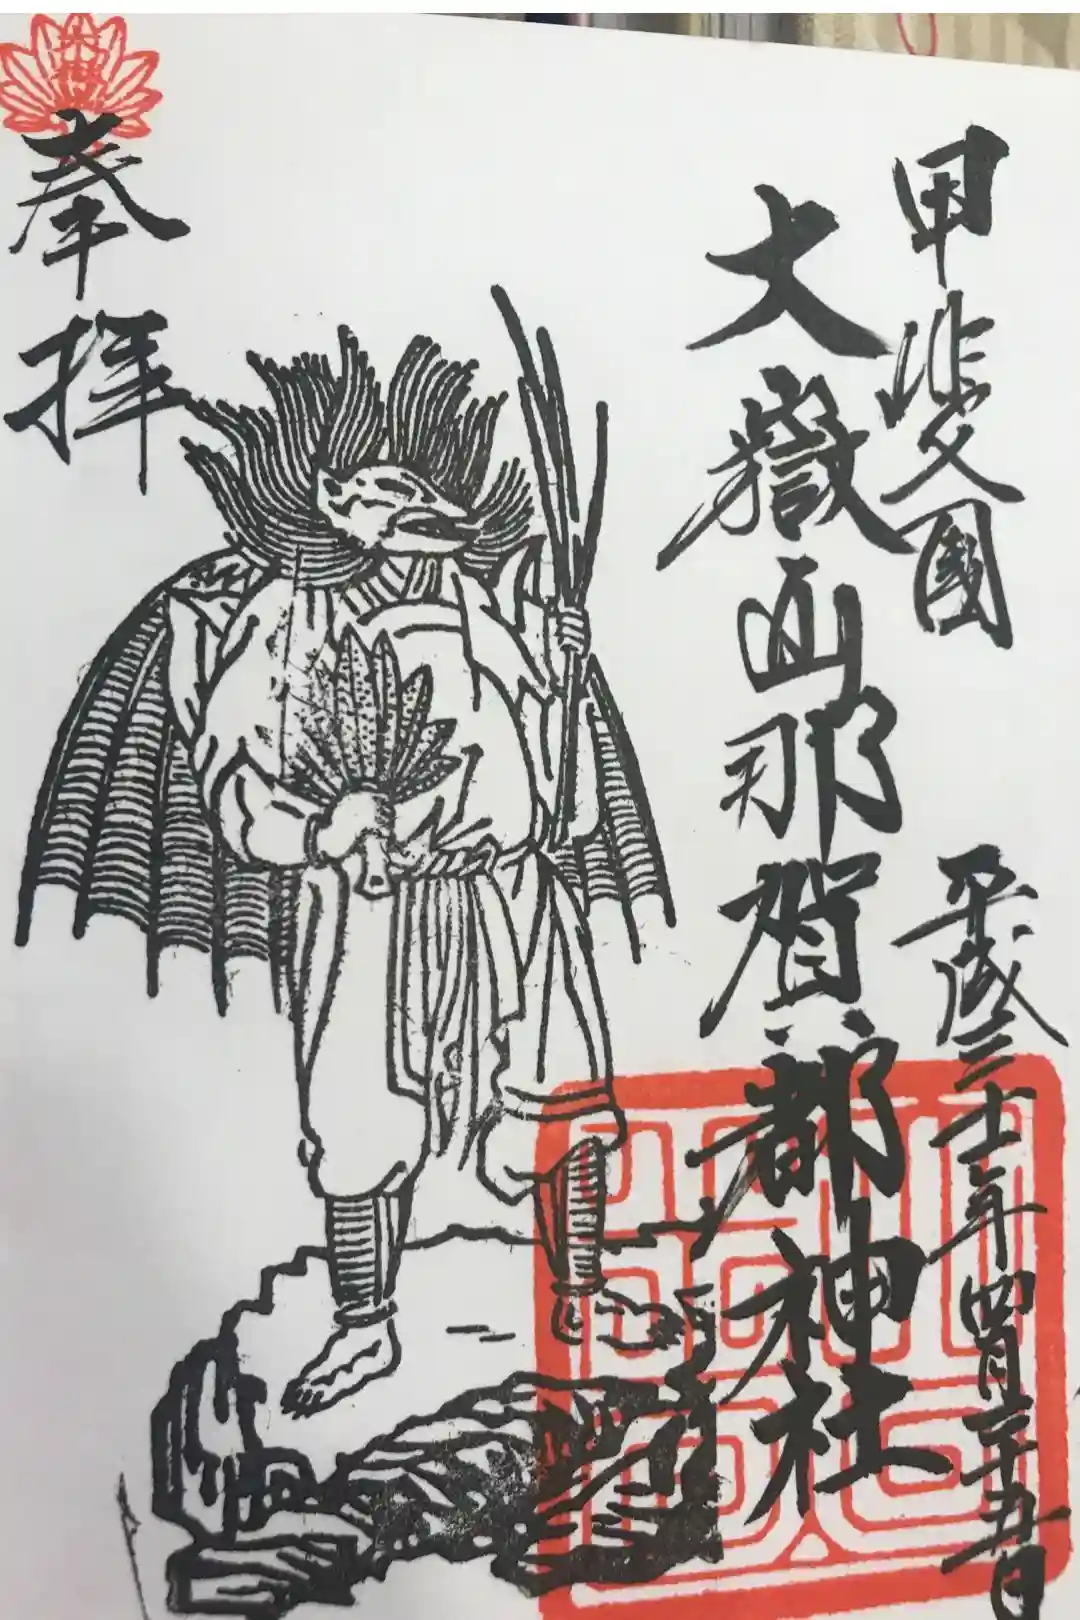 甲斐國
大嶽山那賀都神社
平成三十一年四月二十五日
奉拝